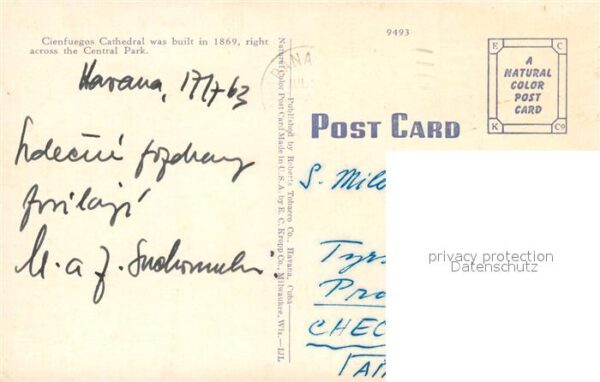 Cienfuegos Cathedral was built in 1869, right
across the Central Park.
9493
Havana, 17/7 63
Srdečné pozdravy
posílají
M. a J.
Published by Roberts Tobacco Co., Havana, Cuba
Natural Color Post Card Made in U.S.A. by E. C. Kropp Co., Milwaukee, Wis.
POST CARD
E C
A
NATURAL
COLOR
POST
CARD
K Co
S.
CHEC
privacy protection
Datenschutz